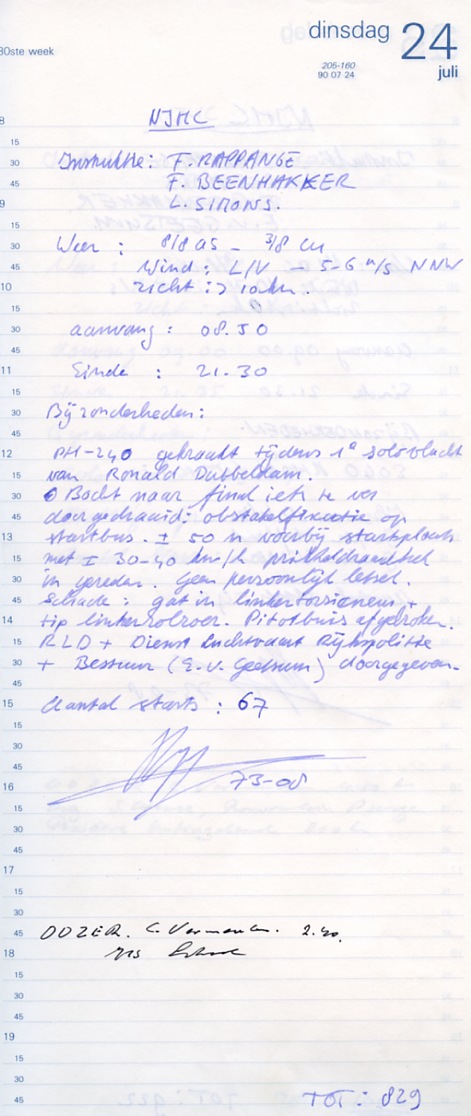 dinsdag 24
30ste week
205-160
90 07 24
juli
NJMC
8
15
30 Instruktie: F. RAPPANGE
45 F. BEENHAKKER
9 L. SIMONS.
15
30 Weer : 8/8 as - 3/8 cu
45 Wind : L/V - 5-6 m/s NNW
10 zicht :> 10 km.
15
30 aanvang : 08.50
45
11 Einde : 21.30
15
30 Bijzonderheden:
45
12 PH-240 gekraakt tijdens 1e solovlucht
15 van Ronald Dubbeldam.
30 Bocht naar final iets te ver
45 doorgedraaid: obstakelfixatie op
13 startbus. ± 50 m voorbij startplaats
15 met ± 30-40 km/h
30 in gereden. Geen persoonlijk letsel.
45 Schade : gat in linker torsieneus +
14 tip linker rolroer. Pitotbuis afgebroken.
15 RLD + Dienst Luchtvaart Rijkspolitie
30 + Bestuur (E.v. Geelsum) doorgegeven.
45
15 Aantal starts : 67
15
30
45 73-08
16
15
30
45
17
15
30
45 DOZER. C. Vermeulen. 2.40.
18
15
30
45
19
15
30
45 TOT : 829